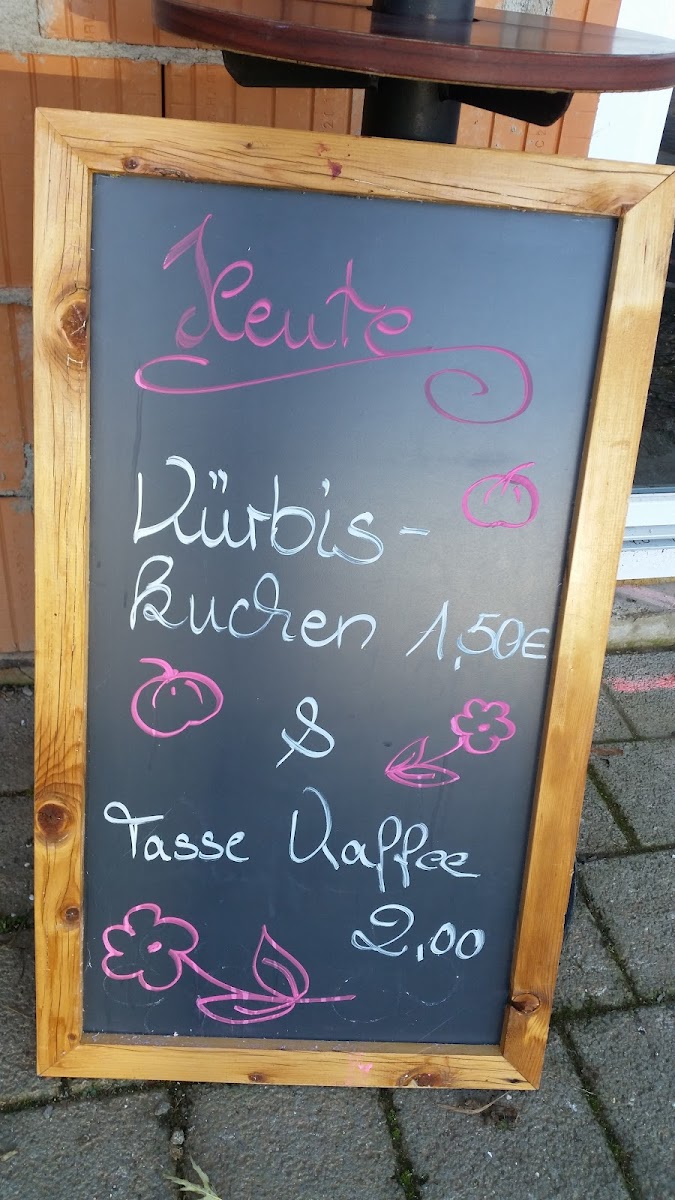 Heute
Kürbis-
kuchen 1,50€
&
Tasse Kaffee
2,00